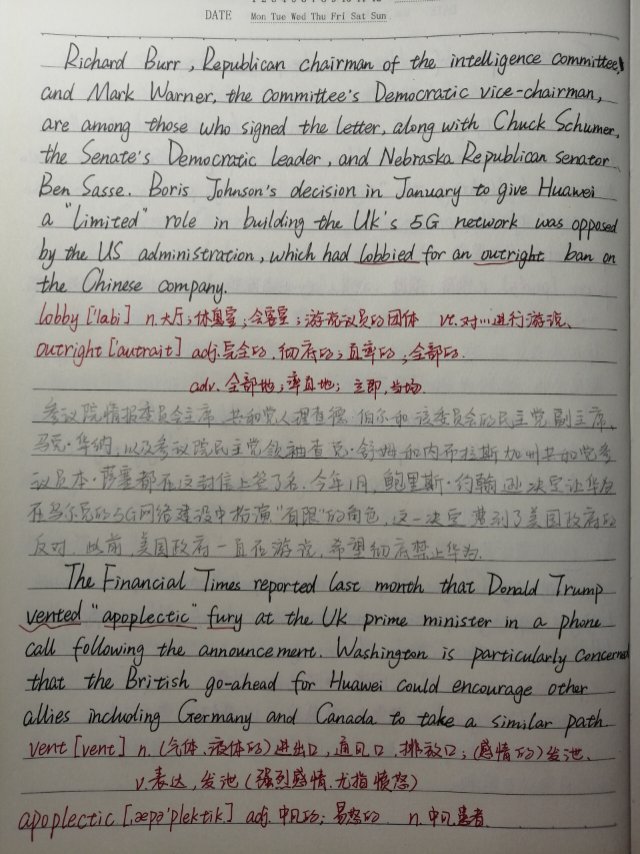 DATE Mon Tue Wed Thu Fri Sat Sun
Richard Burr, Republican chairman of the intelligence committee,
and Mark Warner, the committee's Democratic vice-chairman,
are among those who signed the letter, along with Chuck Schumer,
the Senate's Democratic leader, and Nebraska Republican senator
Ben Sasse. Boris Johnson's decision in January to give Huawei
a "limited" role in building the Uk's 5G network was opposed
by the US administration, which had lobbied for an outright ban on
the Chinese company.
lobby ['labi] n.大厅;休息室;会客室;游说议员的团体 vt.对…进行游说.
outright ['autrait] adj.完全的,彻底的;直率的;全部的.
adv.全部地;率直地;立即,当场.
参议院情报委员会主席、共和党人理查德·伯尔和该委员会的民主党副主席
马克·华纳,以及参议院民主党领袖查克·舒姆和内布拉斯加州共和党参
议员本·萨塞都在这封信上签了名.今年1月,鲍里斯·约翰逊决定让华为
在英国的5G网络建设中扮演"有限"的角色,这一决定遭到了美国政府的
反对.此前,美国政府一直在游说,希望彻底禁止华为.
The Financial Times reported last month that Donald Trump
vented "apoplectic" fury at the UK prime minister in a phone
call following the announcement. Washington is particularly concerned
that the British go-ahead for Huawei could encourage other
allies including Germany and Canada to take a similar path.
vent [vent] n.(气体、液体的)进出口,通风口,排放口;(感情的)发泄.
v.表达,发泄(强烈感情,尤指愤怒)
apoplectic [,æpə'plektik] adj.中风的;易怒的 n.中风患者